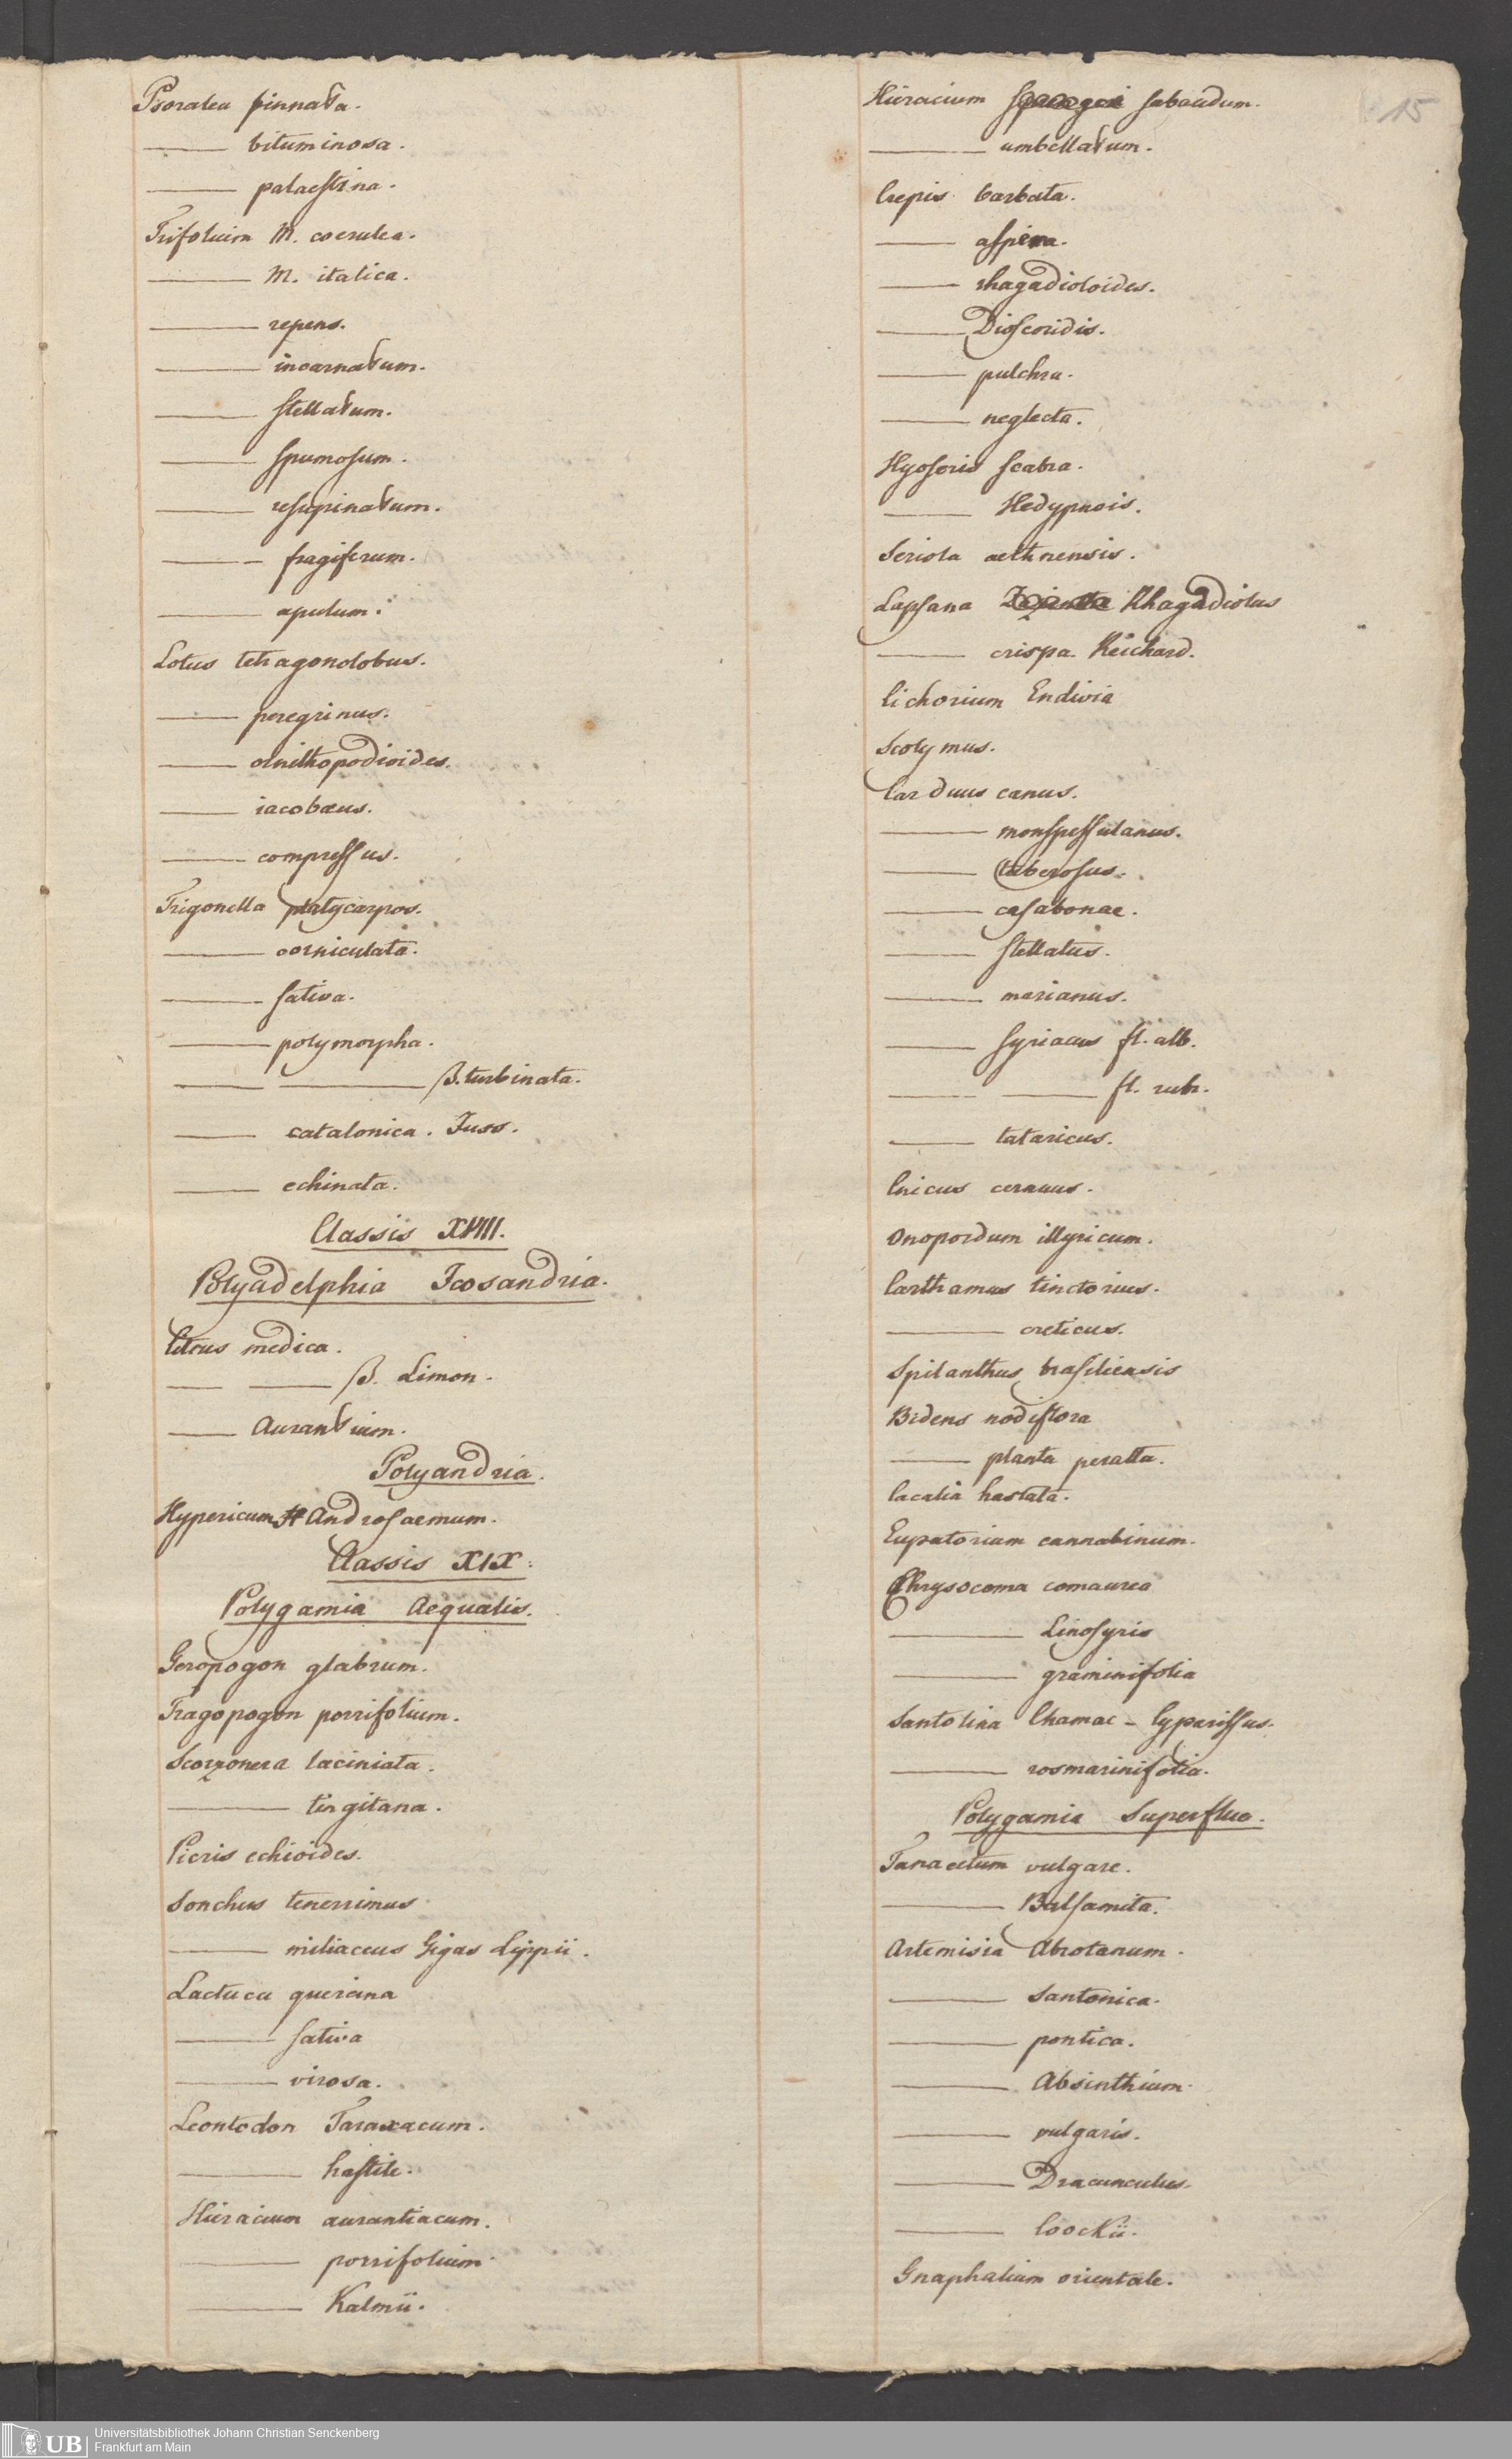 Psoralea pinnata.
—— bituminosa.
—— palaestina.
Trifolium M. coerulea.
—— M. italica.
—— repens.
—— incarnatum.
—— stellatum.
—— spumosum.
—— resupinatum.
—— fragiferum.
—— apulum.
Lotus tetragonolobus.
—— peregrinus.
—— ornithopodioides.
—— iacobaeus.
—— compressus.
Trigonella platycarpos.
—— corniculata.
—— sativa.
—— polymorpha.
—— —— β. turbinata.
—— catalonica. Juss.
—— echinata.
Classis XVIII.
Polyadelphia Icosandria.
Citrus medica.
—— —— β. Limon.
—— Aurantium.
Polyandria.
Hypericum Androsaemum.
Classis XIX.
Polygamia Aequalis.
Geropogon glabrum.
Tragopogon porrifolium.
Scorzonera laciniata.
—— tingitana.
Picris echioides.
Sonchus tenerrimus
—— miliaceus Gigas Lippii.
Lactuca quercina
—— sativa
—— virosa.
Leontodon Taraxacum.
—— hastile.
Hieracium aurantiacum.
—— porrifolium.
—— Kalmii.
15
Hieracium sabaudum.
—— umbellatum.
Crepis barbata.
—— aspera.
—— rhagadioloides.
—— Dioscoridis.
—— pulchra.
—— neglecta.
Hyoseris scabra.
—— Hedypnois.
Seriola aethnensis.
Lapsana Zazintha Rhagadiolus
—— crispa. Reichard.
Cichorium Endivia
Scolymus.
Carduus canus.
—— monspessulanus.
—— tuberosus.
—— casabonae.
—— stellatus.
—— marianus.
—— syriacus fl. alb.
—— —— fl. rubr.
—— tataricus.
Cnicus cernuus.
Onopordum illyricum.
Carthamus tinctorius.
—— creticus.
Spilanthus brasiliensis
Bidens nodiflora
—— planta peralta.
Cacalia hastata.
Eupatorium cannabinum.
Chrysocoma comaurea
—— Linosyris
—— graminifolia
Santolina Chamae-Cyparissus.
—— rosmarinifolia.
Polygamia Superflua.
Tanacetum vulgare.
—— Balsamita.
Artemisia Abrotanum.
—— Santonica.
—— pontica.
—— Absinthium.
—— vulgaris.
—— Dracunculus.
—— Coockii.
Gnaphalium orientale.
UB
Universitätsbibliothek Johann Christian Senckenberg
Frankfurt am Main